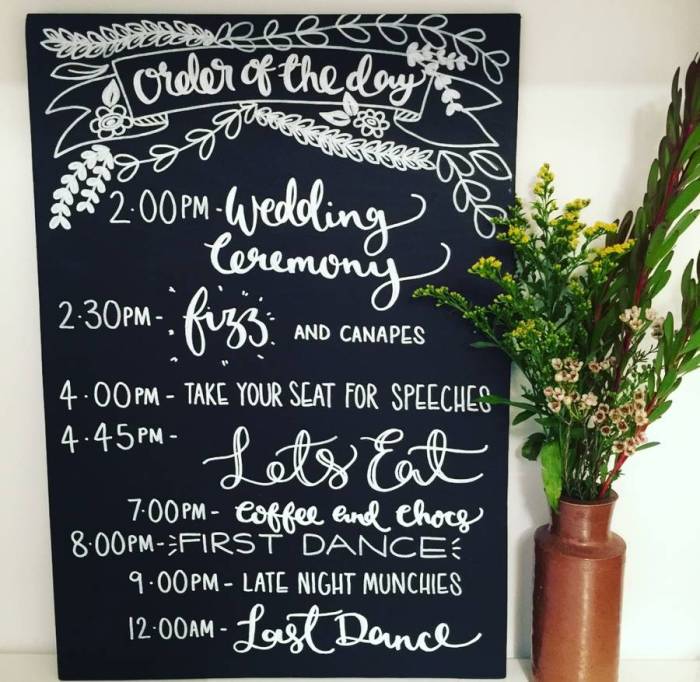 order of the day
2.00PM - Wedding
Ceremony
2.30PM - fizz AND CANAPES
4.00PM - TAKE YOUR SEAT FOR SPEECHES
4.45PM -
Lets Eat
7.00PM - Coffee and Chocs
8.00PM - FIRST DANCE
9.00PM - LATE NIGHT MUNCHIES
12.00AM - Last Dance